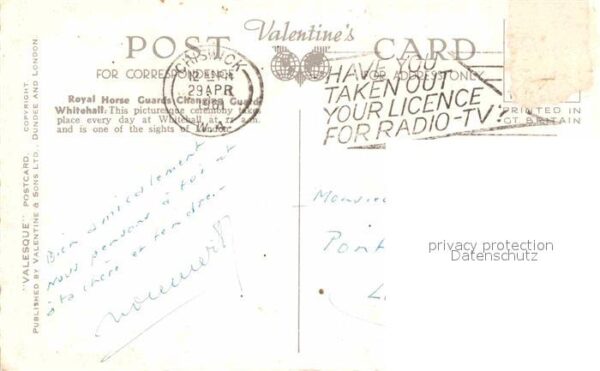 Valentine's
POST CARD
FOR CORRESPONDENCE
FOR ADDRESS ONLY
CHISWICK
29 APR
W.4
HAVE YOU
TAKEN OUT
YOUR LICENCE
FOR RADIO-TV?
PRINTED IN
GT BRITAIN
Royal Horse Guards Changing Guard
Whitehall. This picturesque ceremony takes
place every day at Whitehall at 11 a.m.
and is one of the sights of London.
"VALESQUE" POSTCARD. COPYRIGHT.
PUBLISHED BY VALENTINE & SONS LTD., DUNDEE AND LONDON.
Bien amicalement
nous pensons à toi et
à ta chère et tendre.
Monsieur
Pont
privacy protection
Datenschutz